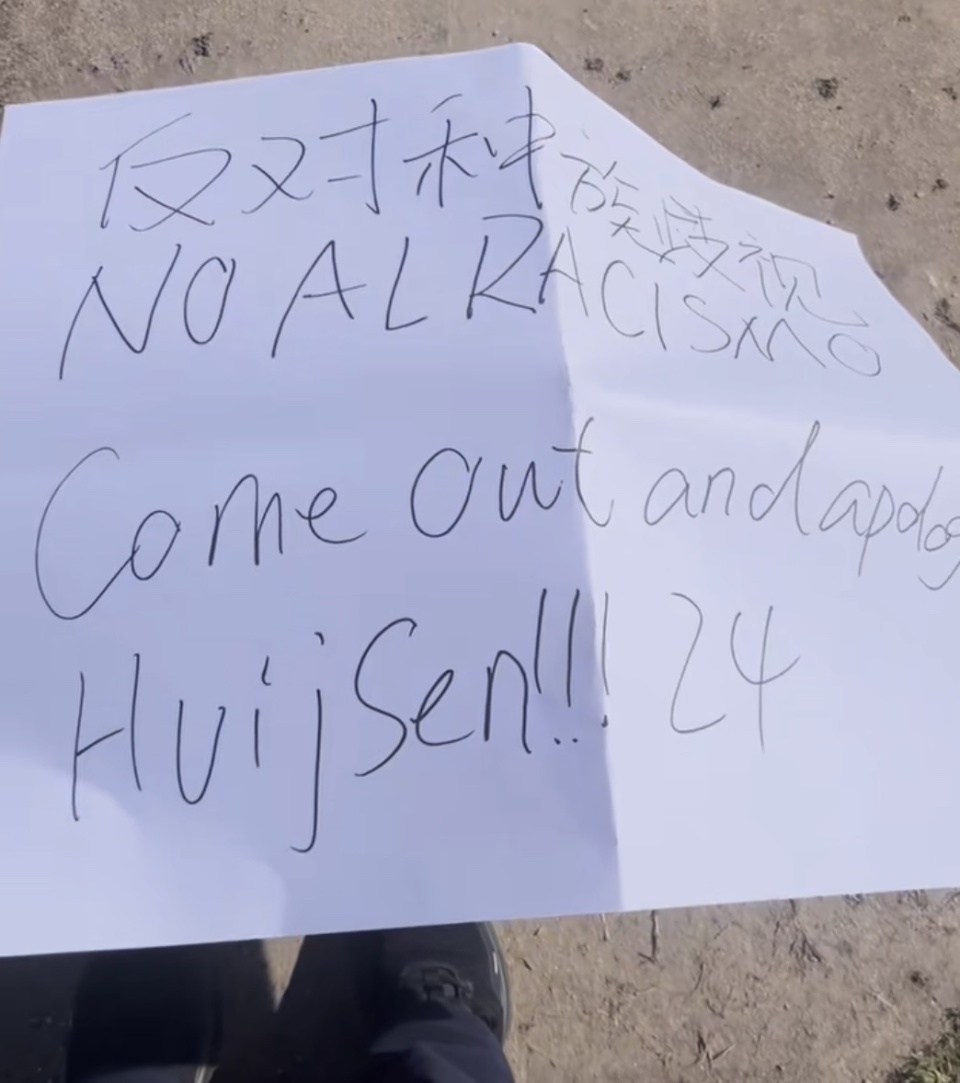 反对种族歧视
NO AL RACISMO
Come out and apolog
Huijsen!!! 24